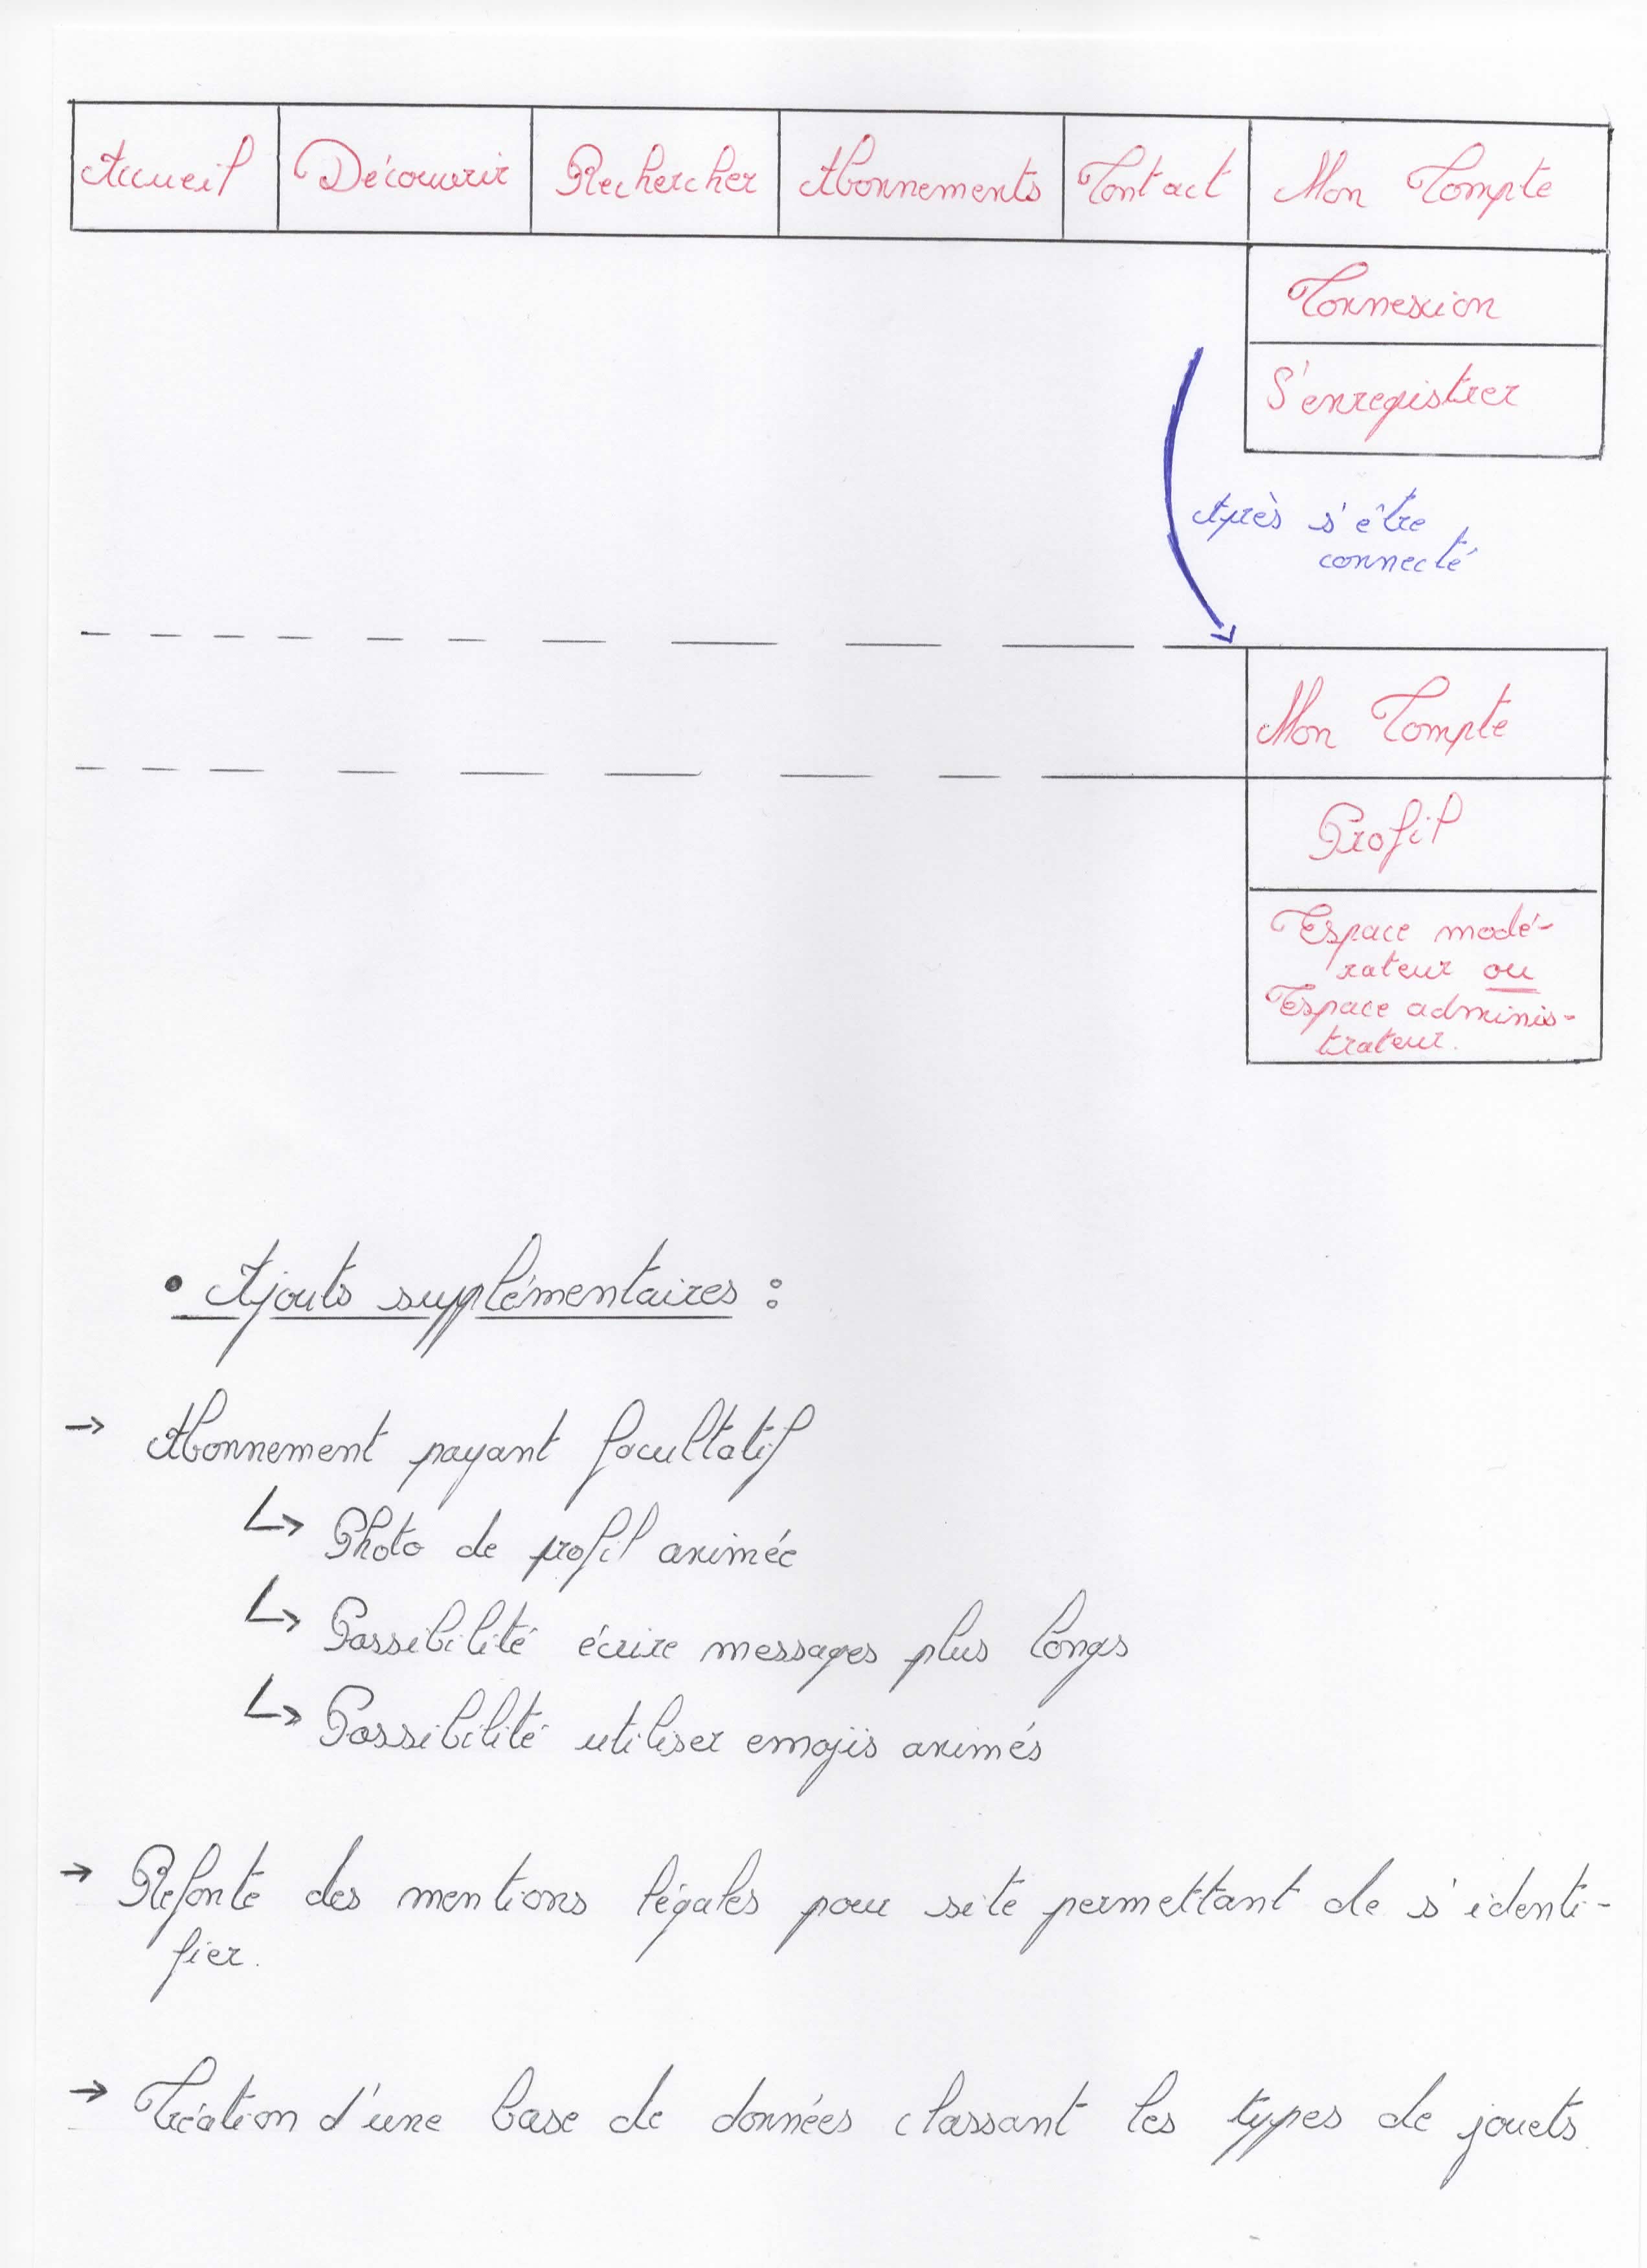 Accueil Découvrir Rechercher Abonnements Contact Mon Compte
Connexion
S'enregistrer
Après s'être
connecté
Mon Compte
Profil
Espace modé-
rateur ou
Espace adminis-
trateur.
• Ajouts supplémentaires :
→ Abonnement payant facultatif
↳ Photo de profil animée
↳ Possibilité écrire messages plus longs
↳ Possibilité utiliser emojis animés
→ Refonte des mentions légales pour site permettant de s'identi-
fier.
→ Création d'une base de données classant les types de jouets.